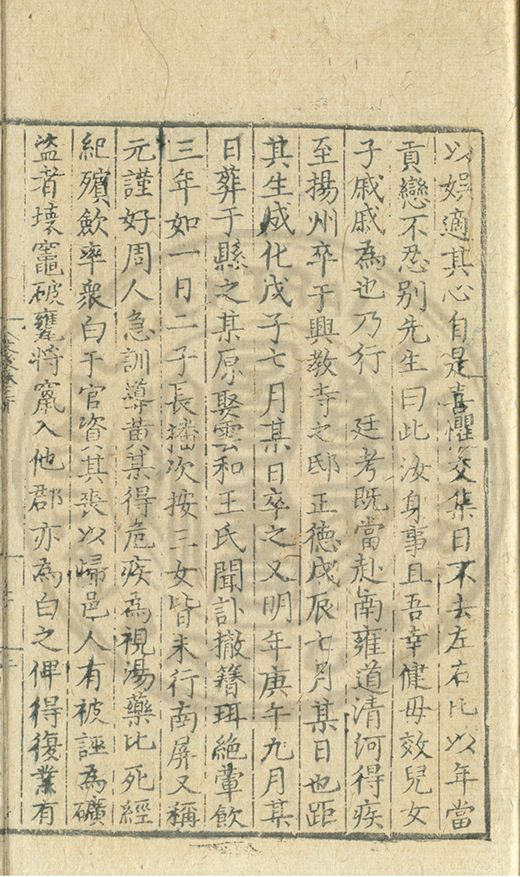 以娯適其心自是喜懼交集日不去左右比以年當
貢戀不忍别先生曰此汝身事且吾幸健毋效兒女
子戚戚為也乃行　廷考既當赴南雍道清河得疾
至揚州卒于興教寺之邸正德戊辰七月某日也距
其生成化戊子七月某日卒之又明年庚午九月某
日葬于縣之某原娶雲和王氏聞訃撤簪珥絕葷飲
三年如一日二子長播次按三女皆未行南屏又稱
元謹好周人急訓導黄某得危疾為視湯藥比死經
紀殯歛率衆白于官資其喪以歸邑人有被誣為礦
盜者壞竈破甕將竄入他郡亦為白之俾得復業有